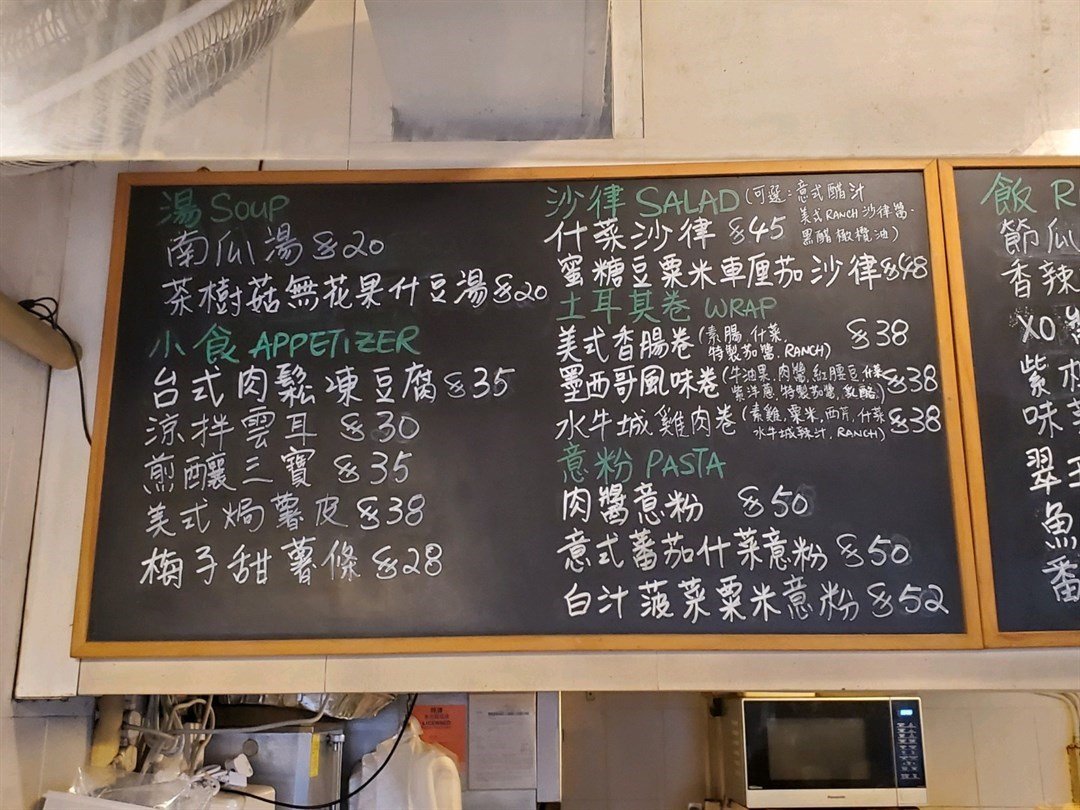 湯 SOUP
南瓜湯 $20
茶樹菇無花果什豆湯 $20
小食 APPETIZER
台式肉鬆凍豆腐 $35
涼拌雲耳 $30
煎釀三寶 $35
美式焗薯皮 $38
梅子甜薯條 $28
沙律 SALAD (可選:意式醋汁
美式RANCH沙律醬.
黑醋橄欖油)
什菜沙律 $45
蜜糖豆粟米車厘茄沙律 $48
土耳其卷 WRAP
美式香腸卷 (素腸,什菜,
特製茄醬, RANCH) $38
墨西哥風味卷 (牛油果,肉醬,紅腰豆,什菜
紫洋蔥,特製茄醬,乳酪) $38
水牛城雞肉卷 (素雞,粟米,西芹,什菜
水牛城辣汁, RANCH) $38
意粉 PASTA
肉醬意粉 $50
意式蕃茄什菜意粉 $50
白汁菠菜粟米意粉 $52
飯 R
節瓜
香辣
XO醬
紫
味
翠王
魚
番